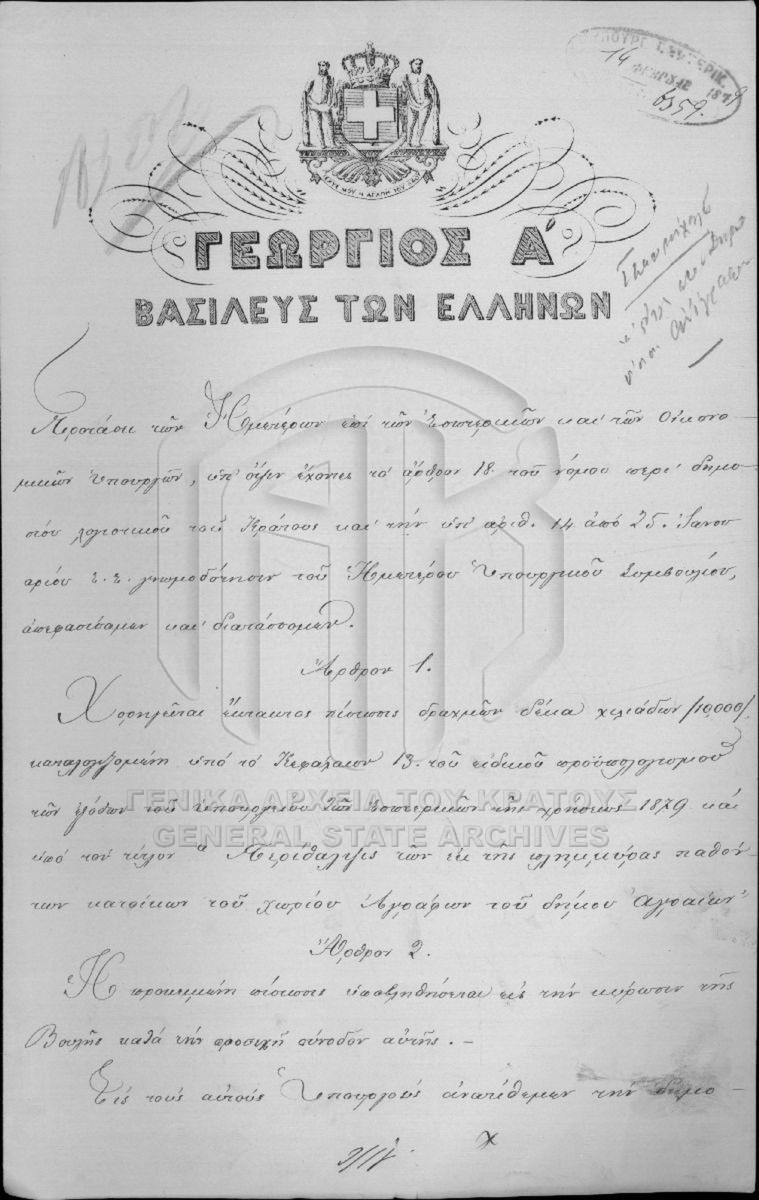 ΥΠΟΥΡΓ. ΕΣΩΤΕΡΙΚ.
14
ΦΕΒΡ. 1879
6359.
ΙΣΧΥΣ ΜΟΥ Η ΑΓΑΠΗ ΤΟΥ ΛΑΟΥ
ΓΕΩΡΓΙΟΣ Α΄
ΒΑΣΙΛΕΥΣ ΤΩΝ ΕΛΛΗΝΩΝ
Προτάσει τῶν Ἡμετέρων ἐπὶ τῶν Ἐσωτερικῶν καὶ τῶν Οἰκονο-
μικῶν Ὑπουργῶν, ὑπ' ὄψιν ἔχοντες τὸ ἄρθρον 18. τοῦ νόμου περὶ δημο-
σίου λογιστικοῦ τοῦ Κράτους καὶ τὴν ὑπ' ἀριθ. 14 ἀπὸ 25. Ἰανου
αρίου ἐ. ἔ. γνωμοδότησιν τοῦ Ἡμετέρου Ὑπουργικοῦ Συμβουλίου,
ἀπεφασίσαμεν καὶ διατάσσομεν.
Ἄρθρον 1.
Χορηγεῖται ἔκτακτος πίστωσις δραχμῶν δέκα χιλιάδων /10,000/,
καταλογιζομένη ὑπὸ τὸ Κεφάλαιον 13. τοῦ εἰδικοῦ προϋπολογισμοῦ
τῶν ἐξόδων τοῦ Ὑπουργείου τῶν Ἐσωτερικῶν τῆς χρήσεως 1879 καὶ
ὑπὸ τὸν τίτλον "Περίθαλψις τῶν ἐκ τῆς πλημμύρας παθόν-
των κατοίκων τοῦ χωρίου Ἀγράφων τοῦ δήμου Ἀγραίων"
Ἄρθρον 2.
Ἡ προκειμένη πίστωσις ὑποβληθήσεται εἰς τὴν κύρωσιν τῆς
Βουλῆς κατὰ τὴν προσεχῆ σύνοδον αὐτῆς. —
Εἰς τοὺς αὐτοὺς Ὑπουργοὺς ἀνατίθεμεν τὴν δημο-
ΓΕΝΙΚΑ ΑΡΧΕΙΑ ΤΟΥ ΚΡΑΤΟΥΣ
GENERAL STATE ARCHIVES